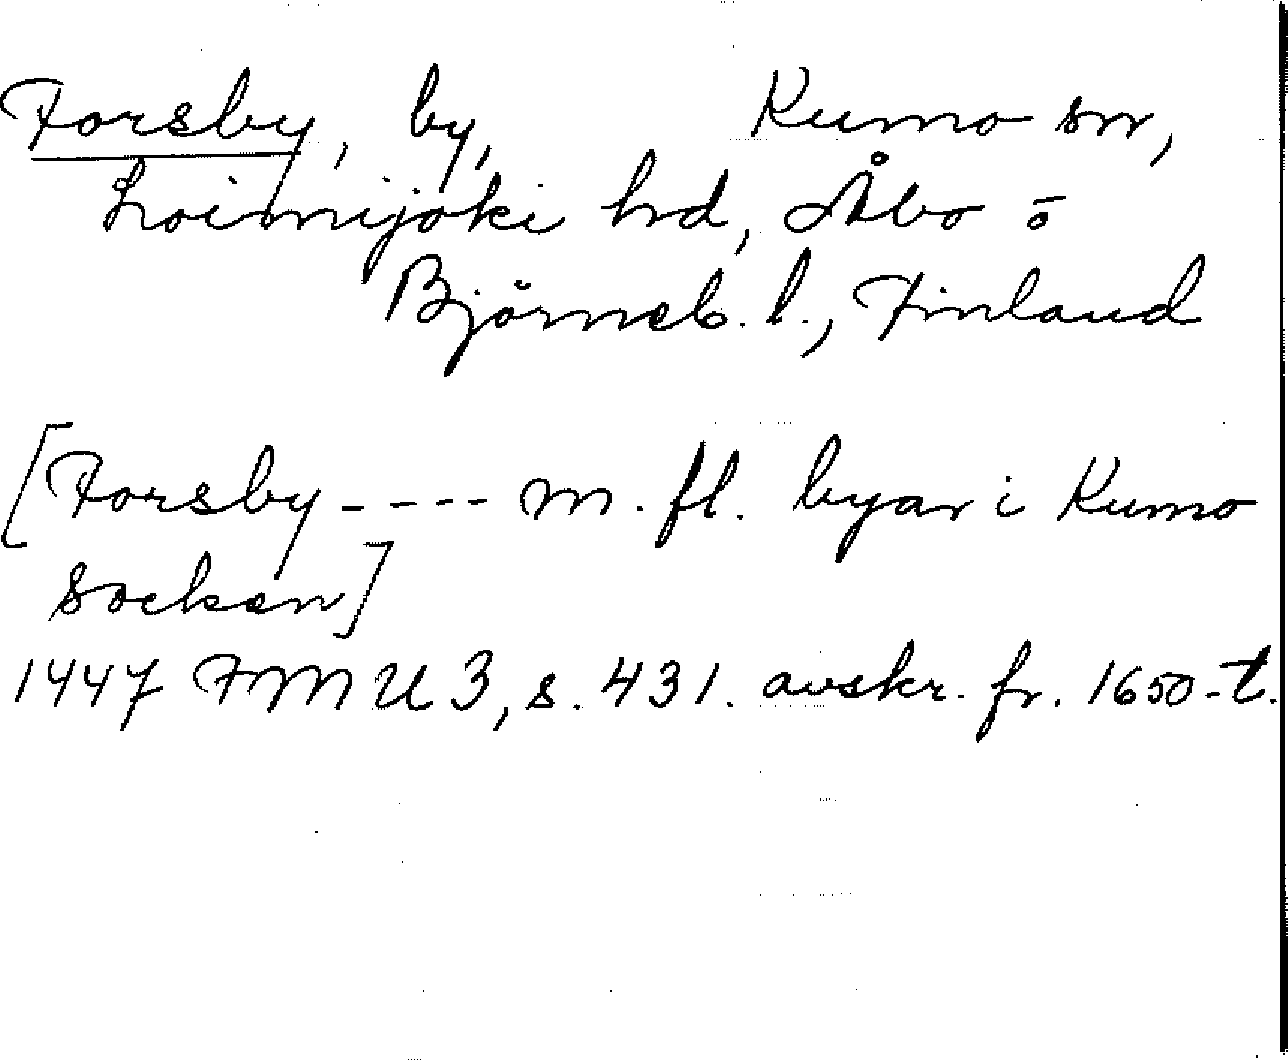 Forsby, by, Kumo sn,
Loimijoki hd, Åbo o
Björneb. l., Finland
[Forsby ---- m. fl. byar i Kumo
socken]
1447 FMU 3, s. 431. avskr. fr. 1650-t.